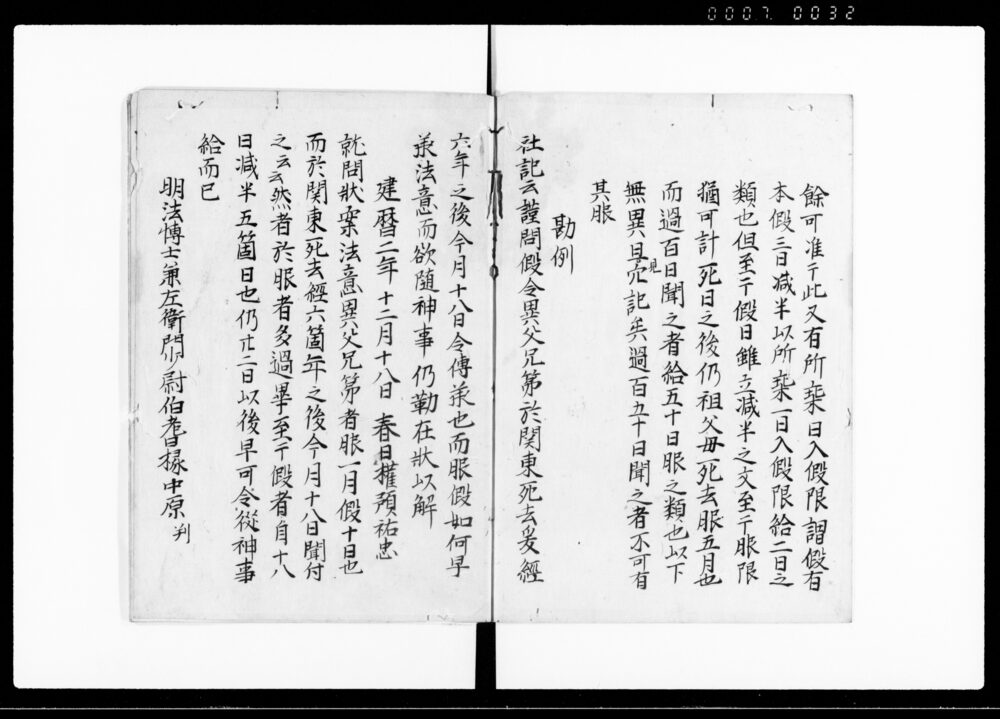 0007 0032
餘可准于此又有所棄日入假限謂假有
本假三日減半以所棄一日入假限給二日之
類也但至于假日雖立減半之文至于服限
猶可計死日之後仍祖父母死去服五月也
而過百日聞之者給五十日服之類也以下
無異見穴記矣過百五十日聞之者不可有
其服
勘例
社記云謹問假令異父兄弟於関東死去爰經
六年之後今月十八日令傳承也而服假如何早
承法意而欲随神事仍勒在狀以解
建暦二年十二月十八日 春日權預祐忠
就問狀案法意異父兄弟者服一月假十日也
而於関東死去經六箇年之後今月十八日聞付
之云云然者於服者多過畢至于假者自十八
日減半五箇日也仍廿二日以後早可令從神事
給而已
明法博士兼左衛門少尉伯耆掾中原 判